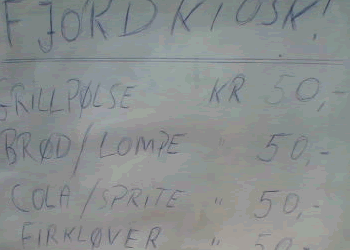 FJORDKIOSK!
GRILLPØLSE KR 50,-
BRØD/LOMPE " 50,-
COLA/SPRITE " 50,-
FIRKLØVER " 50,-